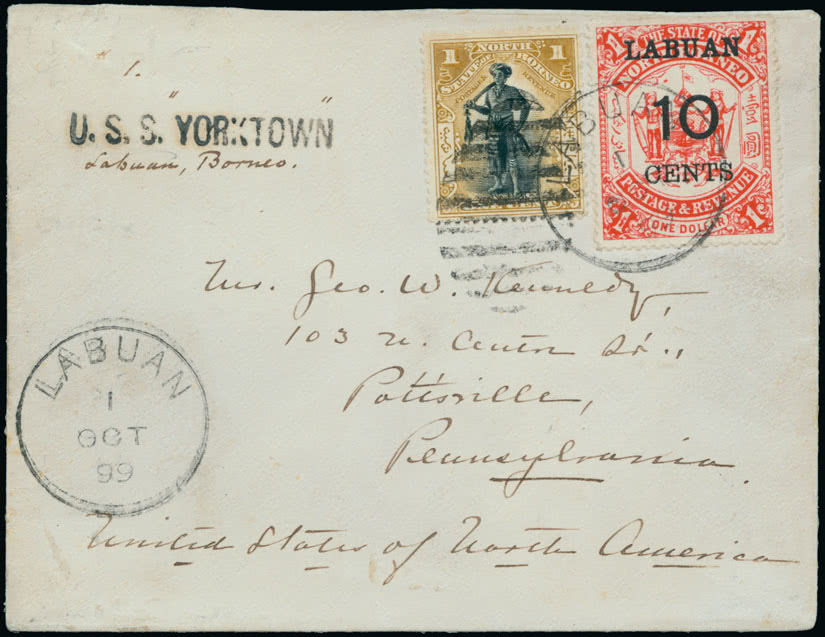 1.
" "
U. S. S. YORKTOWN
Labuan, Borneo.
1 NORTH 1
STATE OF BORNEO
POSTAGE & REVENUE
1 THE STATE OF 1
NORTH BORNEO
LABUAN
10
CENTS
圓
POSTAGE & REVENUE
1 (ONE DOLLAR) 1
LABUAN
Mr. Geo. W. Kennedy,
103 N. Centre St.,
Pottsville,
Pennsylvania.
LABUAN
1
OCT
99
United States of North America